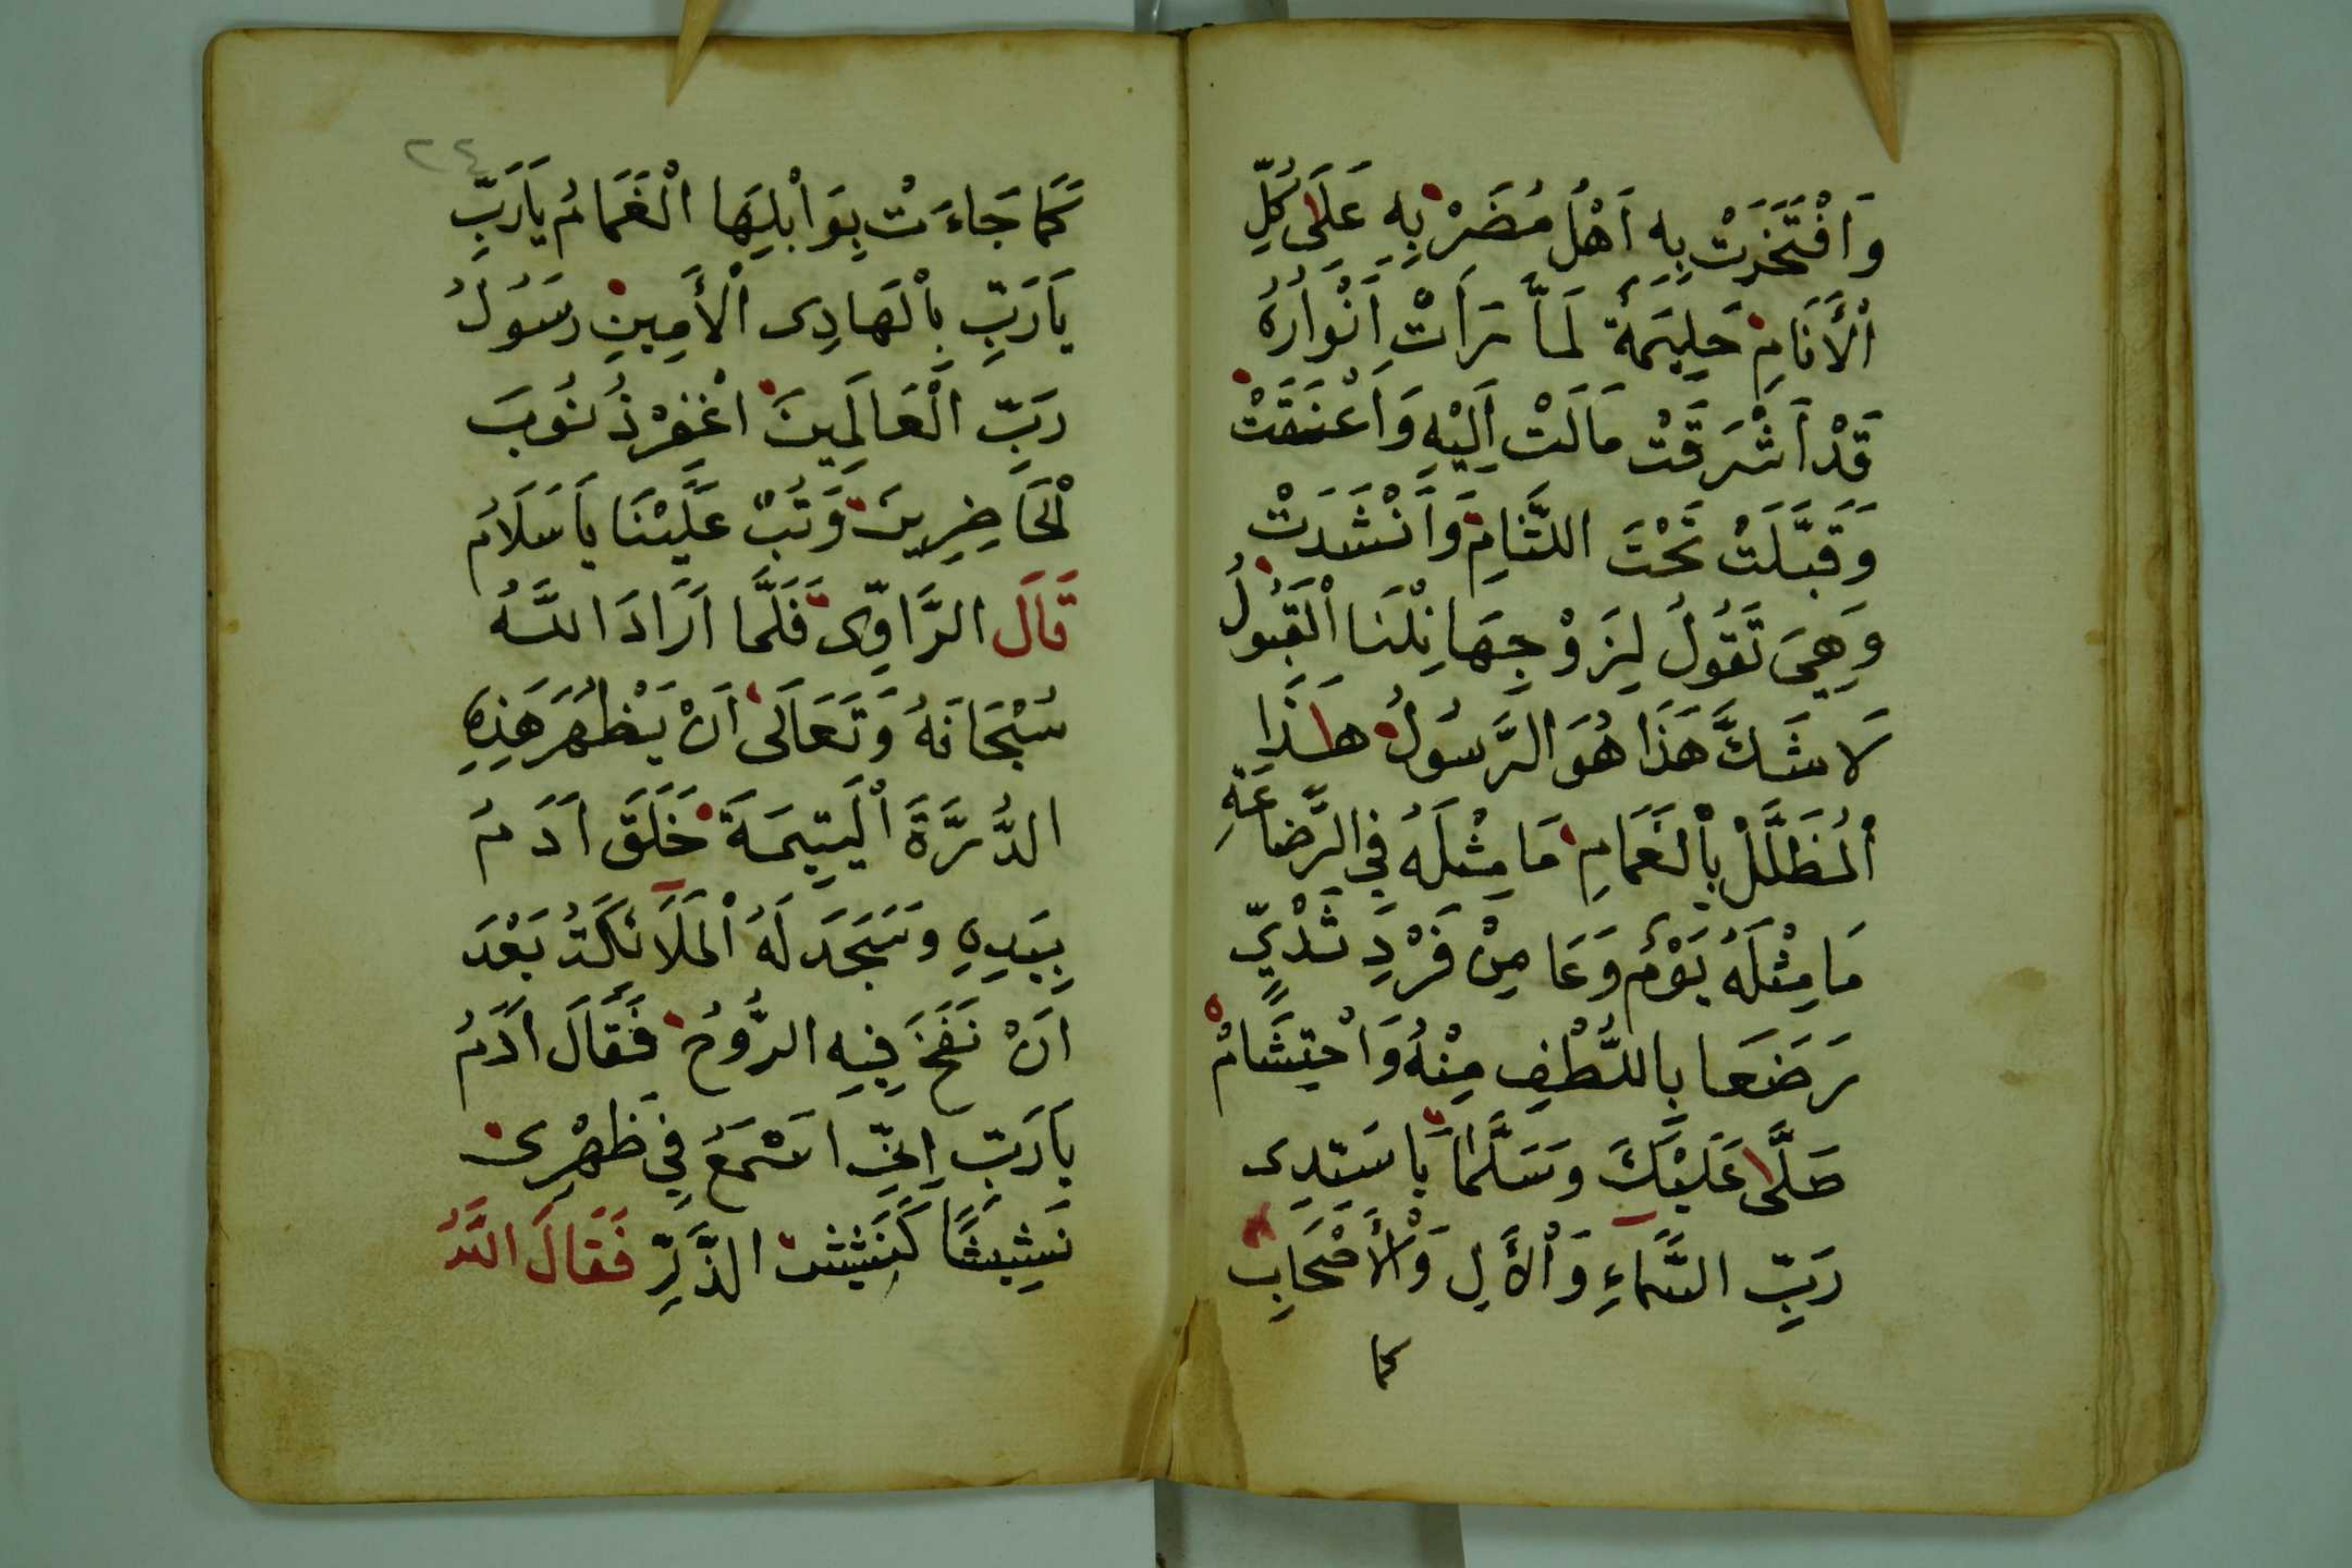 وَافْتَخَرَتْ بِهِ اَهْلُ مُضَرْ بِهِ عَلَى كُلِّ
اْلأَنَامِ حَلِيمَةٌ لَمَّا رَأَتْ اَنْوَارُهُ
قَدْ اَشْرَقَتْ مَالَتْ اِلَيْهِ وَاَعْنَقَتْ
وَقَبَّلَتْ تَحْتَ اللِّثَامِ وَاَنْشَدَتْ
وَهِيَ تَقُولُ لِزَوْجِهَا نِلْنَا اْلقَبُولُ
لَا شَكَّ هَذَا هُوَ الرَّسُولُ هـٰذَا
اْلمُظَلَّلْ بِاْلغَمَامِ مَا مِثْلَهُ فِي الرَّضَاعَةِ
مَا مِثْلَهُ يَوْمٌ وَعَا مِنْ فَرْدِ ثَدْيٍّ
رَضَعَا بِاللُّطْفِ مِنْهُ وَاحْتِشَامْ
صَلَّى عَلَيْكَ وَسَلَّمَا يَا سَيِّدِى
رَبِّ السَّمَاءِ وَاْلأَلِ وَاْلأَصْحَابِ
كما
٢٤
كَمَا جَاءَتْ بِوَابْلِهَا الْغَمَامُ يَارَبِّ
يَارَبِّ بِاْلهَادِى اْلأَمِينِ رَسُولُ
رَبِّ الْعَالَمِينَ اغْفِرْ ذُنُوبَ
اْلحَاضِرِينَ وَتُبْ عَلَيْنَا يَاسَلَامُ
قَالَ الرَّاوِى فَلَمَّا اَرَادَ اللّٰهُ
سُبْحَانَهُ وَتَعَالَى اَنْ يَظْهُرَ هَذِهِ
الدُّرَّةَ اْليَتِيمَةَ خَلَقَ اَدَمُ
بِيَدِهِ وَسَجَدَ لَهُ اْلمَلَائِكَتُ بَعْدَ
اَنْ نَفَخَ فِيهِ الرُّوحُ فَقَالَ اَدَمُ
يَارَبِّ اِنِّي اَسْمَعُ فِي ظَهْرِى
نَشِيشًا كَنَشِيشِ الذَّرِّ فَقَالَ اللّٰهُ